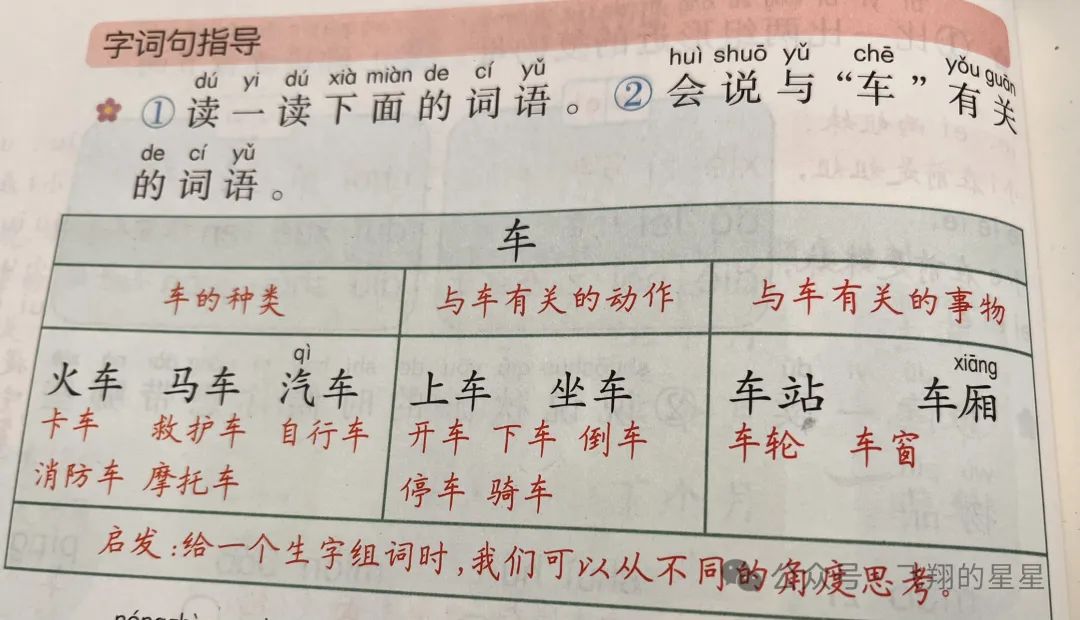 字词句指导
dú yi dú xià miàn de cí yǔ huì shuō yǔ chē yǒu guān
①读一读下面的词语。②会说与“车”有关
de cí yǔ
的词语。
车
车的种类 与车有关的动作 与车有关的事物
qì xiāng
火车 马车 汽车 上车 坐车 车站 车厢
卡车 救护车 自行车 开车 下车 倒车 车轮 车窗
消防车 摩托车 停车 骑车
启发:给一个生字组词时,我们可以从不同的角度思考。
公众号 飞翔的星星